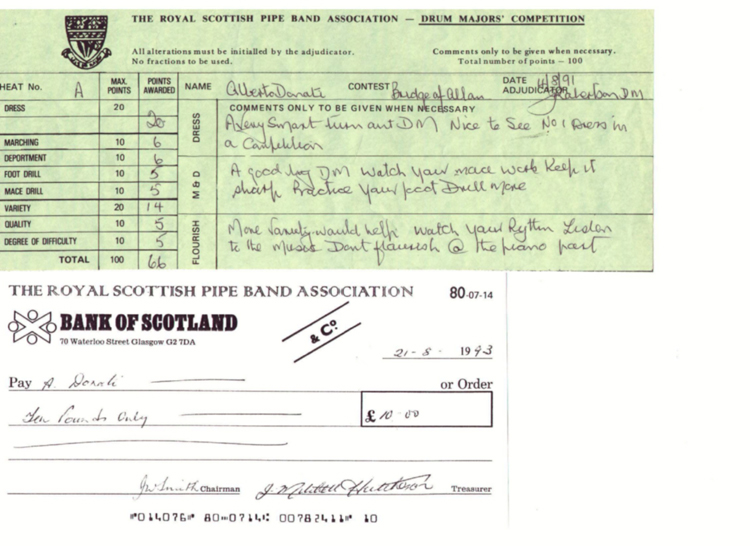 THE ROYAL SCOTTISH PIPE BAND ASSOCIATION — DRUM MAJORS' COMPETITION
All alterations must be initialled by the adjudicator.
No fractions to be used.
Comments only to be given when necessary.
Total number of points — 100
HEAT No. A
MAX. POINTS
POINTS AWARDED
NAME Alberto Donati
CONTEST Bridge of Allan
DATE 4/8/91
ADJUDICATOR DM
DRESS 20 20
MARCHING 10 6
DEPORTMENT 10 6
FOOT DRILL 10 5
MACE DRILL 10 5
VARIETY 20 14
QUALITY 10 5
DEGREE OF DIFFICULTY 10 5
TOTAL 100 66
COMMENTS ONLY TO BE GIVEN WHEN NECESSARY
DRESS
A Very Smart turn out DM Nice to See No 1 Dress in
a Competition
M & D
A good big DM Watch your mace work Keep it
sharp Practice your foot Drill more
FLOURISH
More Variety would help watch your Rythm Listen
to the Music Dont flourish @ the piano part
THE ROYAL SCOTTISH PIPE BAND ASSOCIATION
80-07-14
BANK OF SCOTLAND
70 Waterloo Street Glasgow G2 7DA
& Co.
21-8- 1993
Pay A. Donati or Order
Ten Pounds Only
£ 10-00
J W Smith Chairman J. Mitchell Hutcheson Treasurer
014076 80-0714 00782411 10